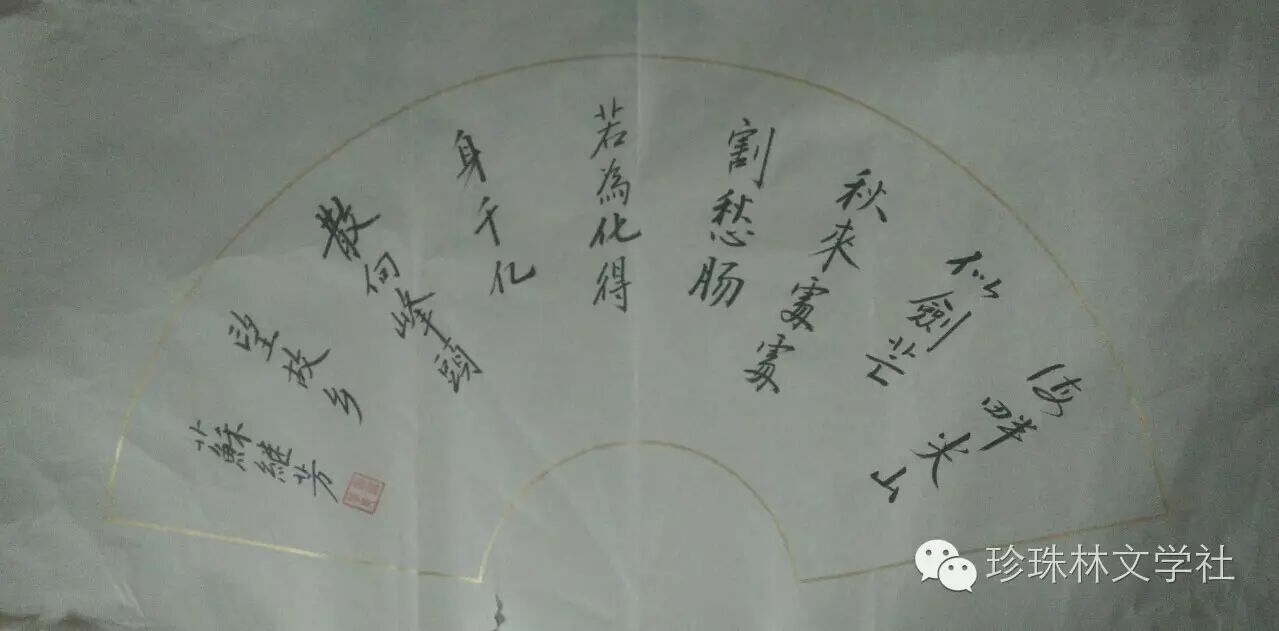 海畔尖山
似劍芒
秋來處處
割愁肠
若為化得
身千亿
散向峰頭
望故乡
蘇維芳
珍珠林文学社